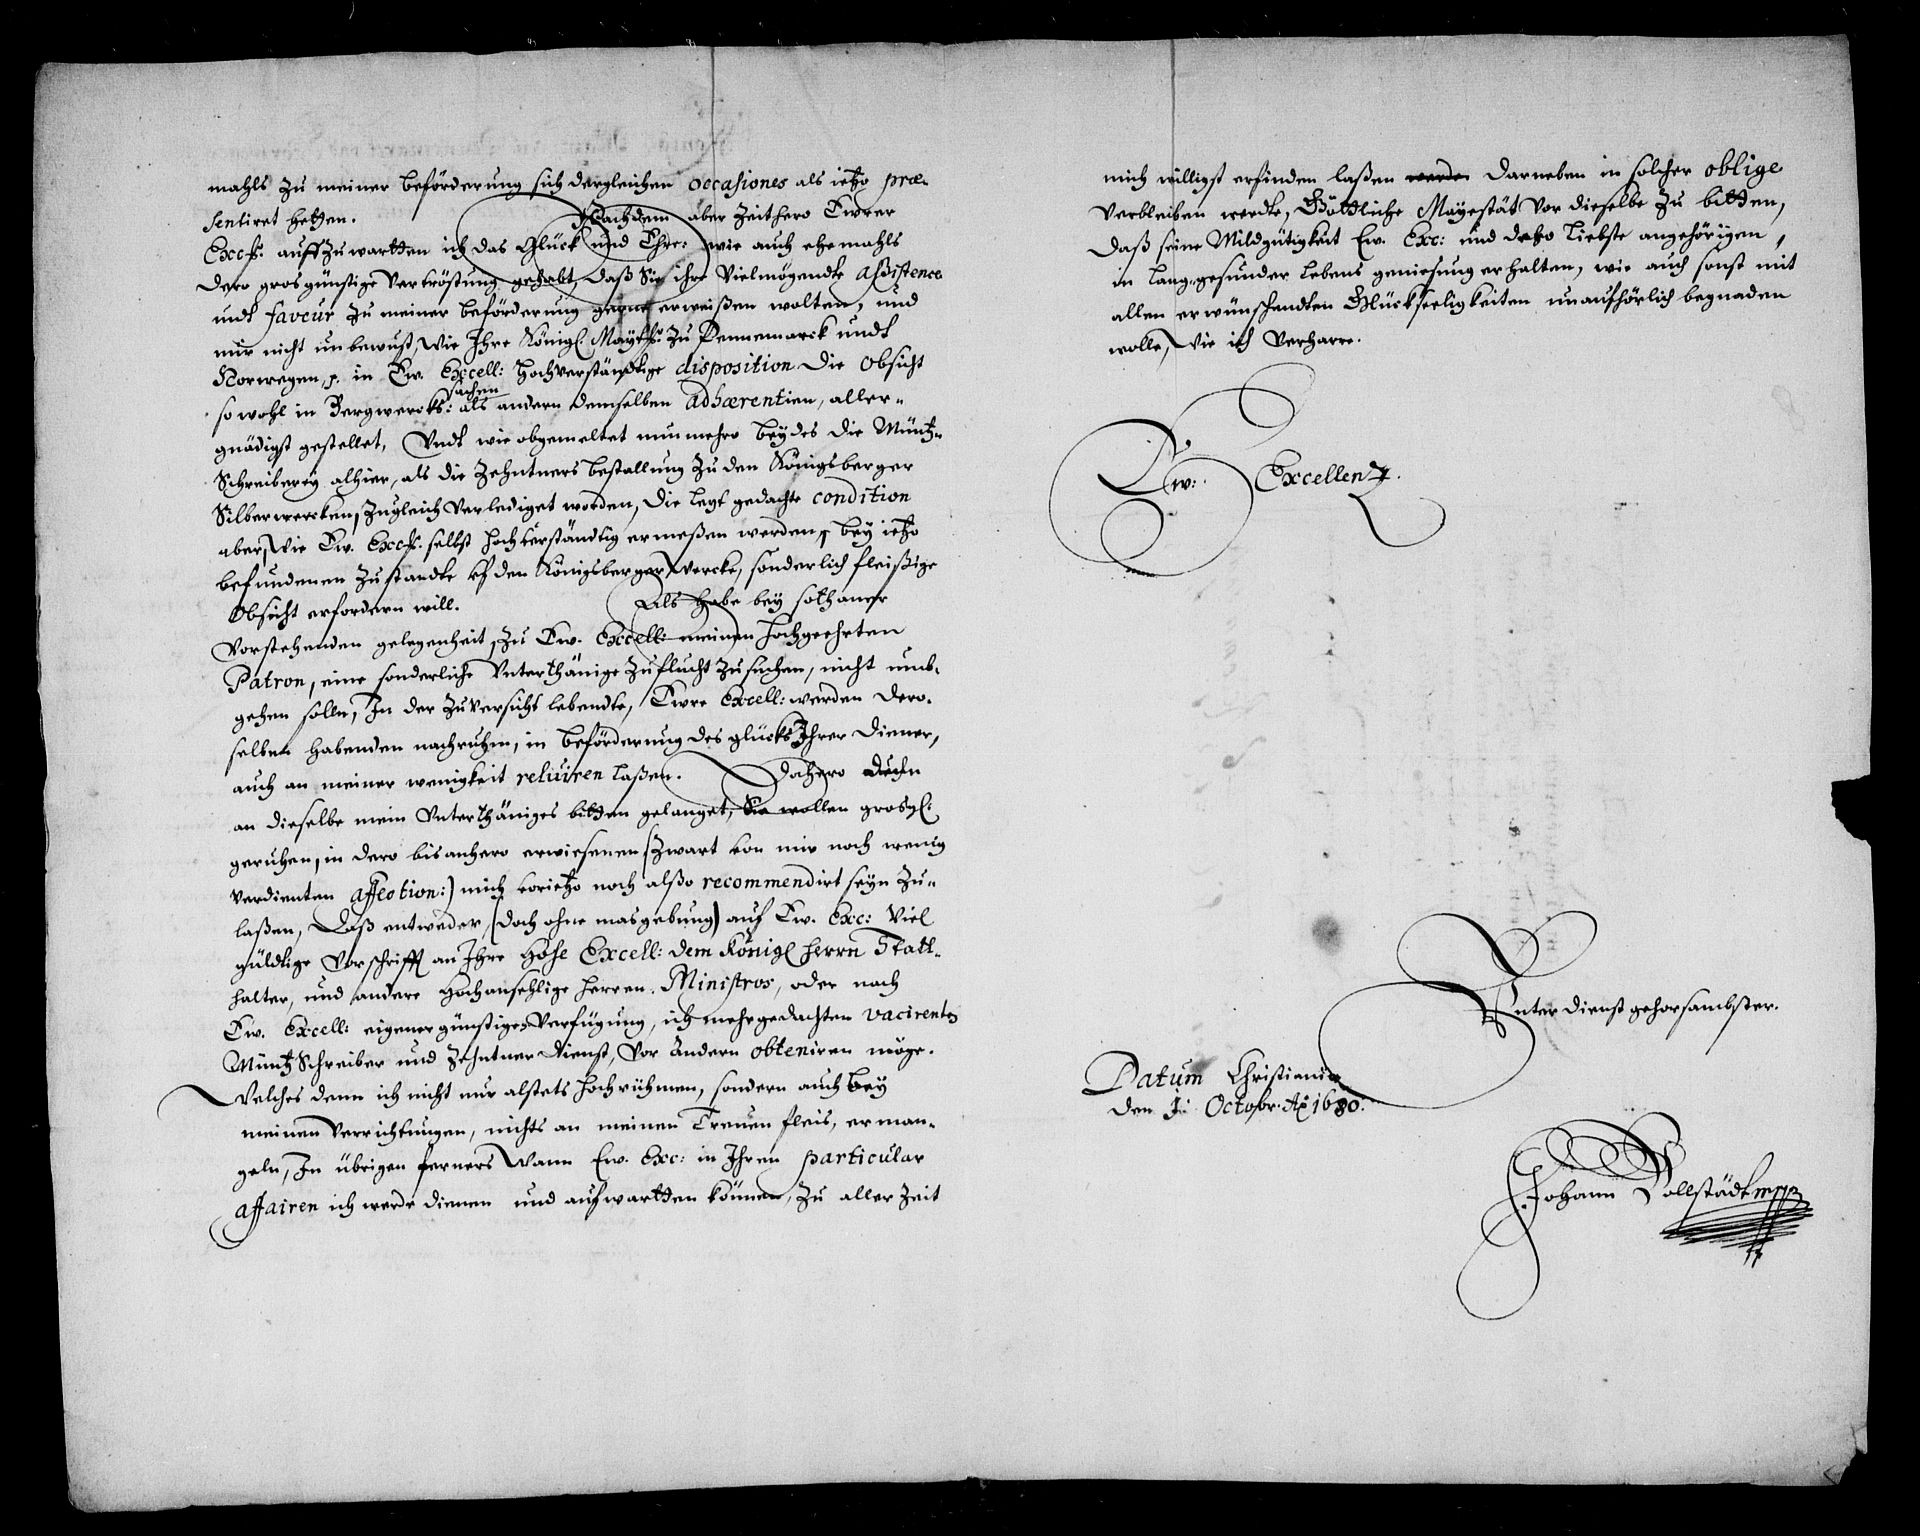 mahls zu meiner beförderung sich dergleichen occasiones als ietzo præ-
sentiret hetten.
Nachdem aber Zeithero Ewrer
Excell. auffzuwartten ich das Glück und Ehre: wie auch ehemahls
dero grosgünstige Vertröstung gehabt, daß Sie ihre Vielmögendte assistence
undt faveur zu meiner beförderung gerne erweißen wolten, und
mir nicht unbewust, wie Ihre Königl. Maytt. zu Dennemarck undt
Norwegen, p. in Ew. Excell: Hochverständtige disposition die Obsicht
sachen
so wohl in Bergwercks: als andern demselben adhærentien, aller-
gnädigst gestellet, Undt wie obgemeltet nunmehro beydes die Müntz-
Schreiberey alhier, als die Zehntners bestallung zu den Königsberger
Silberwercken, zugleich verlediget worden, die letzt gedachte condition
aber, wie Ew. Excell. selbst hochverständtig ermeßen werden, bey ietzo
befundenen Zustandte uf den Königsberger Wercke, sonderlich fleißige
Obsicht erfordern will.
Als habe bey sothaner
Vorstehenden gelegenheit, zu Ew. Excell: meinen hochgeehrten
Patron, eine sonderliche Unterthänige Zuflucht zu suchen, nicht umb-
gehen solln, In der Zuversicht lebendte, Ewre Excell: werden dero-
selben habenden nachruhm, in beförderung des glücks Ihrer Diener,
auch an meiner wenigkeit reluiren laßen.
Dahero denn
an dieselbe mein Unterthäniges bitten gelanget, Sie wollen grosgl.
geruhen, in dero bis anhero erwiesenen (zwart von mir noch wenig
verdienten affection:) mich vorietzo noch alßo recommendirt seyn zu-
laßen, Daß entweder, (doch ohne masgebung) auf Ew. Exc: Viel
güldtige Vorschrifft an Ihre Hohe Excell: dem Königl Herrn Statt-
halter, und andere Hochansehlige Herren Ministros, oder nach
Ew. Excell: eigener günstigen Verfügung, ich mehrgedachten vacirenten
Müntz Schreiber und Zehntner dienst, Vor andern obteniren möge.
Welches denn ich nicht nur alstets hochrühmen, sondern auch bey
meinen Verrichtungen, nichts an meinen Treuen fleis, erman-
geln, In übrigen ferners wann Ew. Exc: in Ihren particular
affairen ich werde dienen und aufwartten können, zu aller Zeit
mich willigst erfinden laßen werde. Darneben in solcher oblige
Verbleiben werdte, Göttliche Mayestät vor dieselbe zu bitten,
daß seine Mildgütigkeit Ew. Exc: und dero liebste angehörigen,
in lang, gesunder lebens geniesung erhalten, wie auch sonst mit
allen erwünschendten Glückseeligkeiten unaufhörlich begnaden
wolle, Wie ich Verharre.
Ew: Excellenz.
Unterdienstgehorsambster.
Datum Christiania
den 1. Octobr. Ao 1680.
Johann Vollstädt mpp